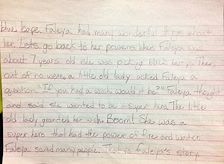 Faleya had many wonderful times about
her. Lets go back to her powers when Faleya was
about 7 years old she was picking berries. Then
out of no where a little old lady asked Faleya a
question "If you had a wish would it be?" Faleya thought
and said she wanted to be a super hero. The little
old lady granted her wish. Boom! She was a
super hero that had the power of fire and water.
Faleya saved many people. That is Faleya's story.